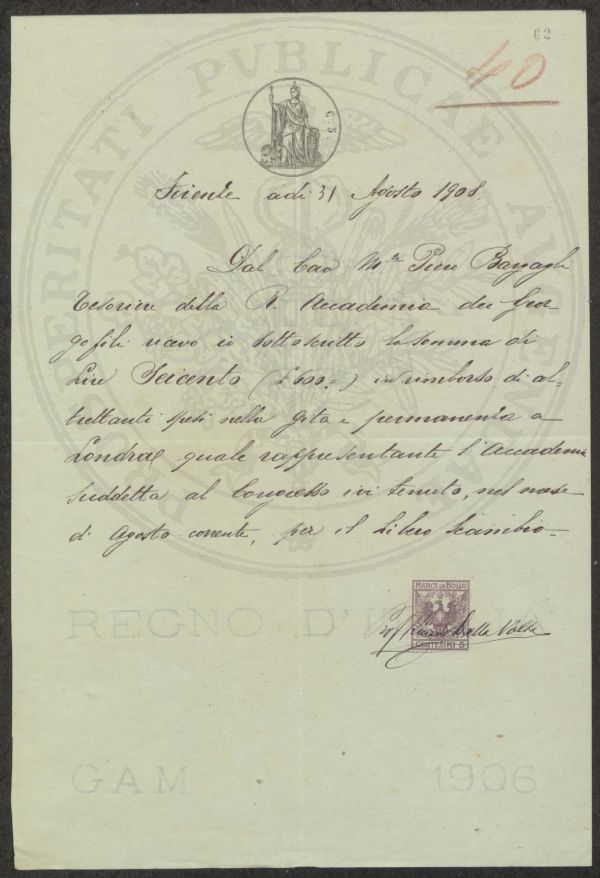 62
40
PROSPERITATI PVBLICAE AVGENDAE
C. 5.
Firenze adì 31 Agosto 1908.
Dal Cav Mse Piero Bargagli
Tesoriere della R. Accademia dei Geor-
gofili ricevo io sottoscritto la somma di
Lire Seicento (£ 600.=) in rimborso di al-
trettanti spesi nella gita e permanenza a
Londra quale rappresentante l'Accademia
suddetta al Congresso ivi tenuto, nel mese
di Agosto corrente, per il Libero Scambio.
MARCA DA BOLLO
REGNO D'ITALIA
Prof Dalla Volta
CENTESIMI 5
GAM 1906